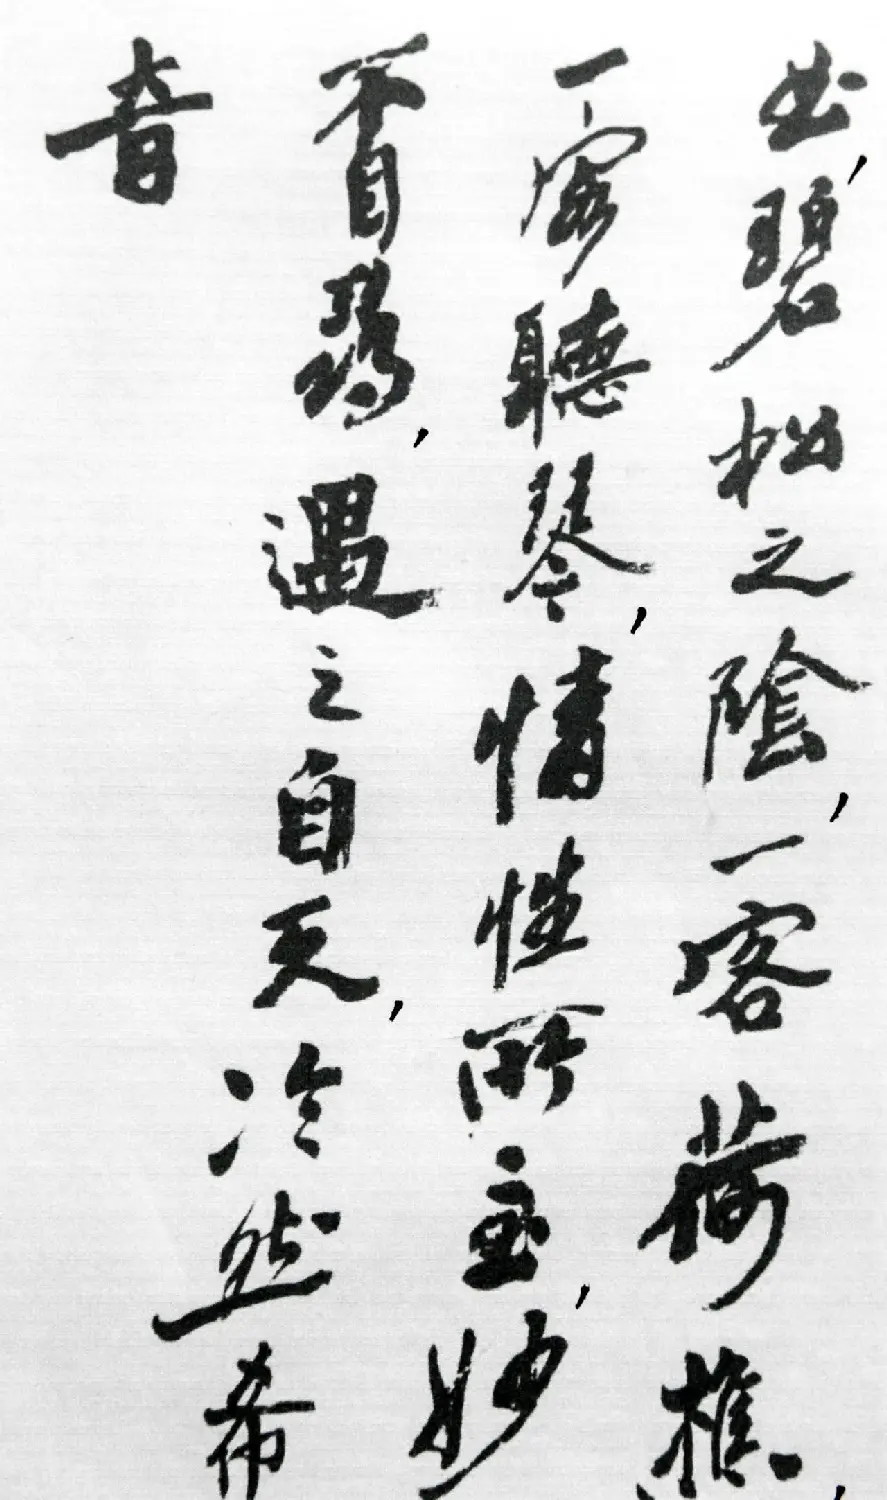 曲,碧松之陰,一客荷樵,
一客聽琴,情性所至,妙
不自尋,遇之自天,冷然希
音